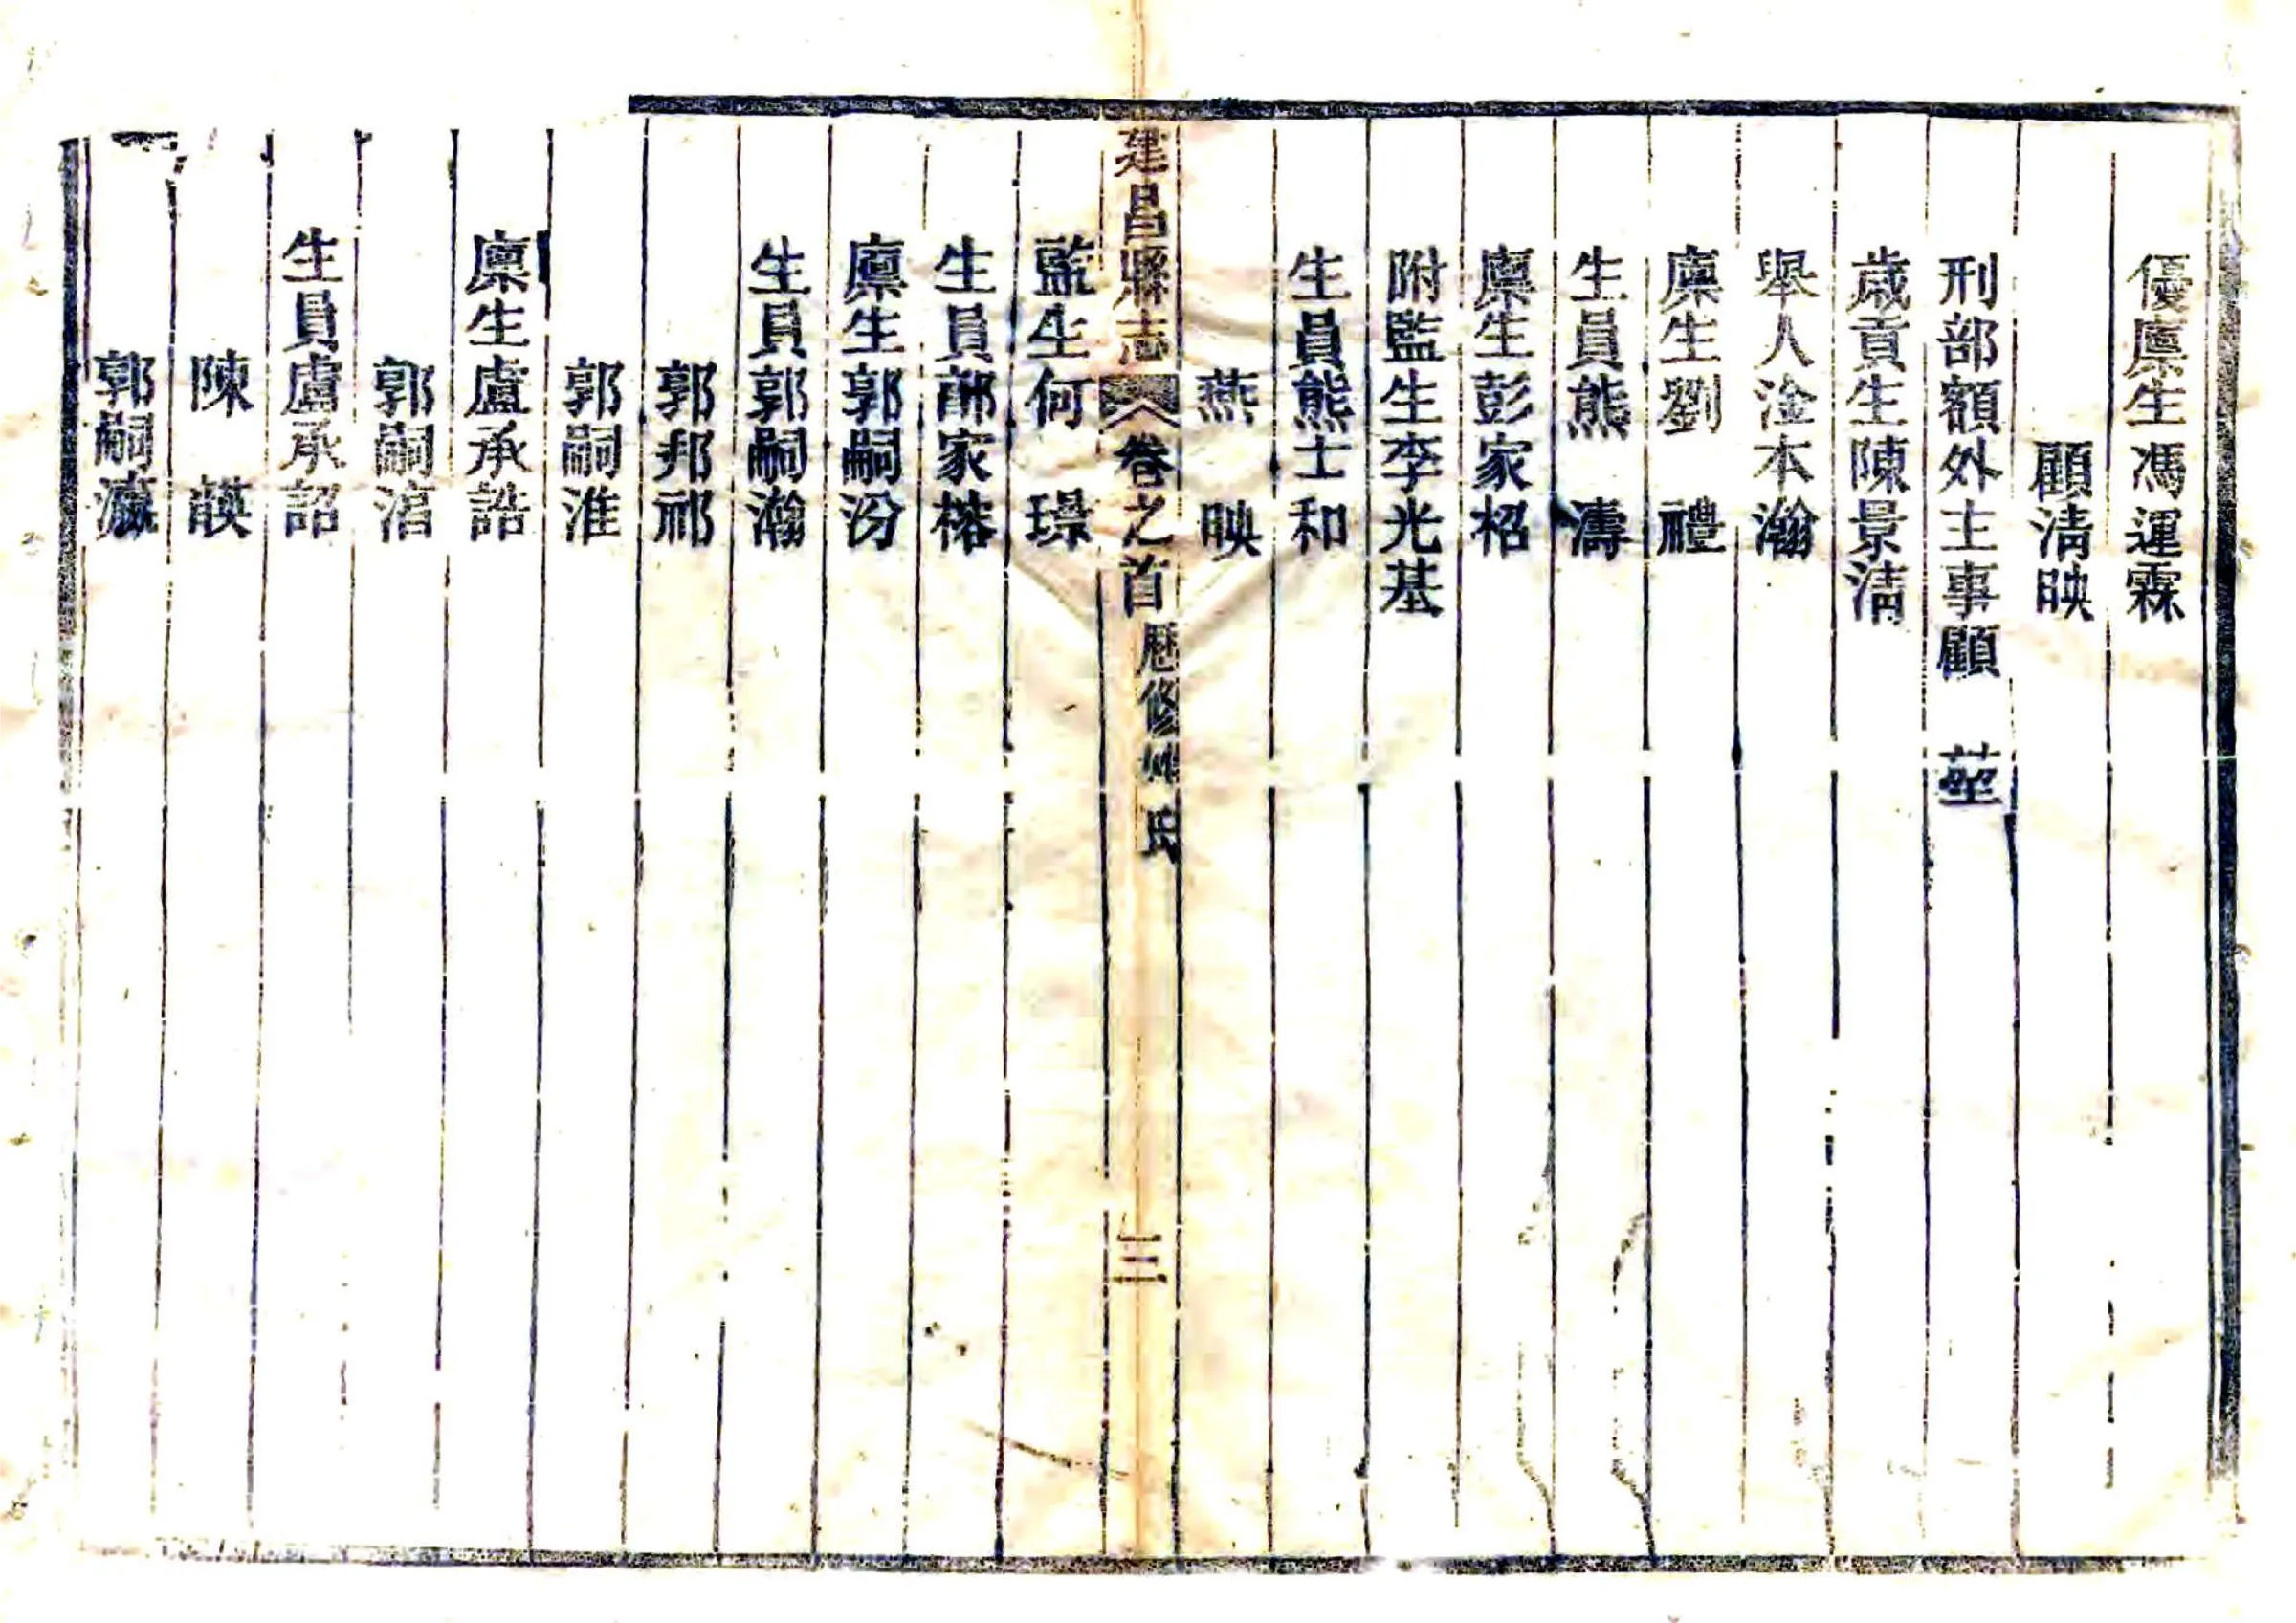 優廩生馮運霖
顧淸映
刑部額外主事顧 莝
歲貢生陳景淸
舉人淦本瀚
廩生劉 禮
生員熊 濤
廩生彭家柖
附監生李光基
生員熊士和
燕 映
建昌縣志 卷之首 歷修姓氏 三
監生何 璟
生員鄺家榕
廩生郭嗣汾
生員郭嗣瀚
郭邦祁
郭嗣淮
廩生盧承誥
郭嗣涫
生員盧承詔
陳 韺
郭嗣瀛